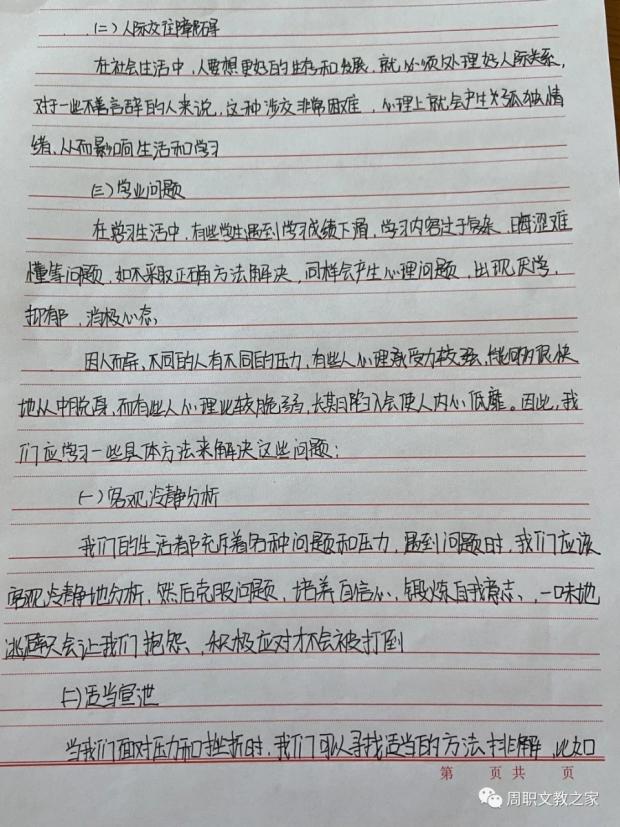 (二)人际交往障碍
在社会生活中,人要想更好的生存和发展,就必须处理好人际关系,
对于一些不善言辞的人来说,这种涉交非常困难,心理上就会产生孤独情
绪,从而影响生活和学习
(三)学业问题
在学习生活中,有些学生遇到学习成绩下滑,学习内容过于复杂,晦涩难
懂等问题,如不采取正确方法解决,同样会产生心理问题,出现厌学,
抑郁,消极心态。
因人而异、不同的人有不同的压力,有些人心理承受力较强,能很快
地从中脱身,而有些人心理比较脆弱,长期陷入会使人内心低靡。因此,我
们应学习一些具体方法来解决这些问题:
(一)客观冷静分析
我们的生活都充斥着各种问题和压力,遇到问题时,我们应该
客观冷静地分析,然后克服问题,培养自信心,锻炼自我意志、一味地
逃避只会让我们抱怨、积极应对才不会被打倒
(二)适当宣泄
当我们面对压力和挫折时,我们可以寻找适当的方法排解,比如
第 页 共 页
周职文教之家